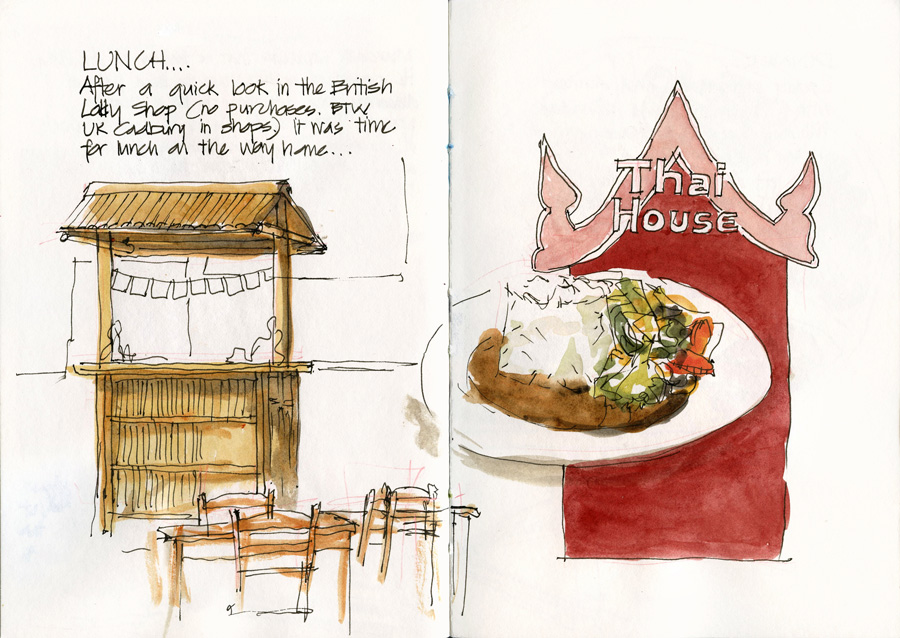 LUNCH....
After a quick look in the British
Lolly Shop (no purchases. BTW
UK Cadbury in shops) it was time
for lunch on the way home...
Thai
HOUSE